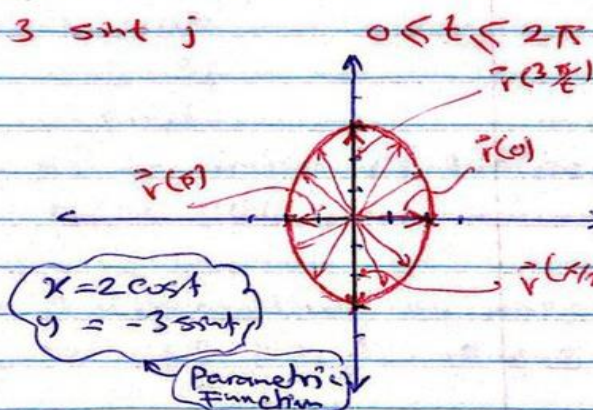 3 sint j 0 ≤ t ≤ 2π
r⃗(3π/2)
r⃗(0)
r⃗(π)
r⃗(π/
x = 2 cost
y = -3 sint
Parametric
Function